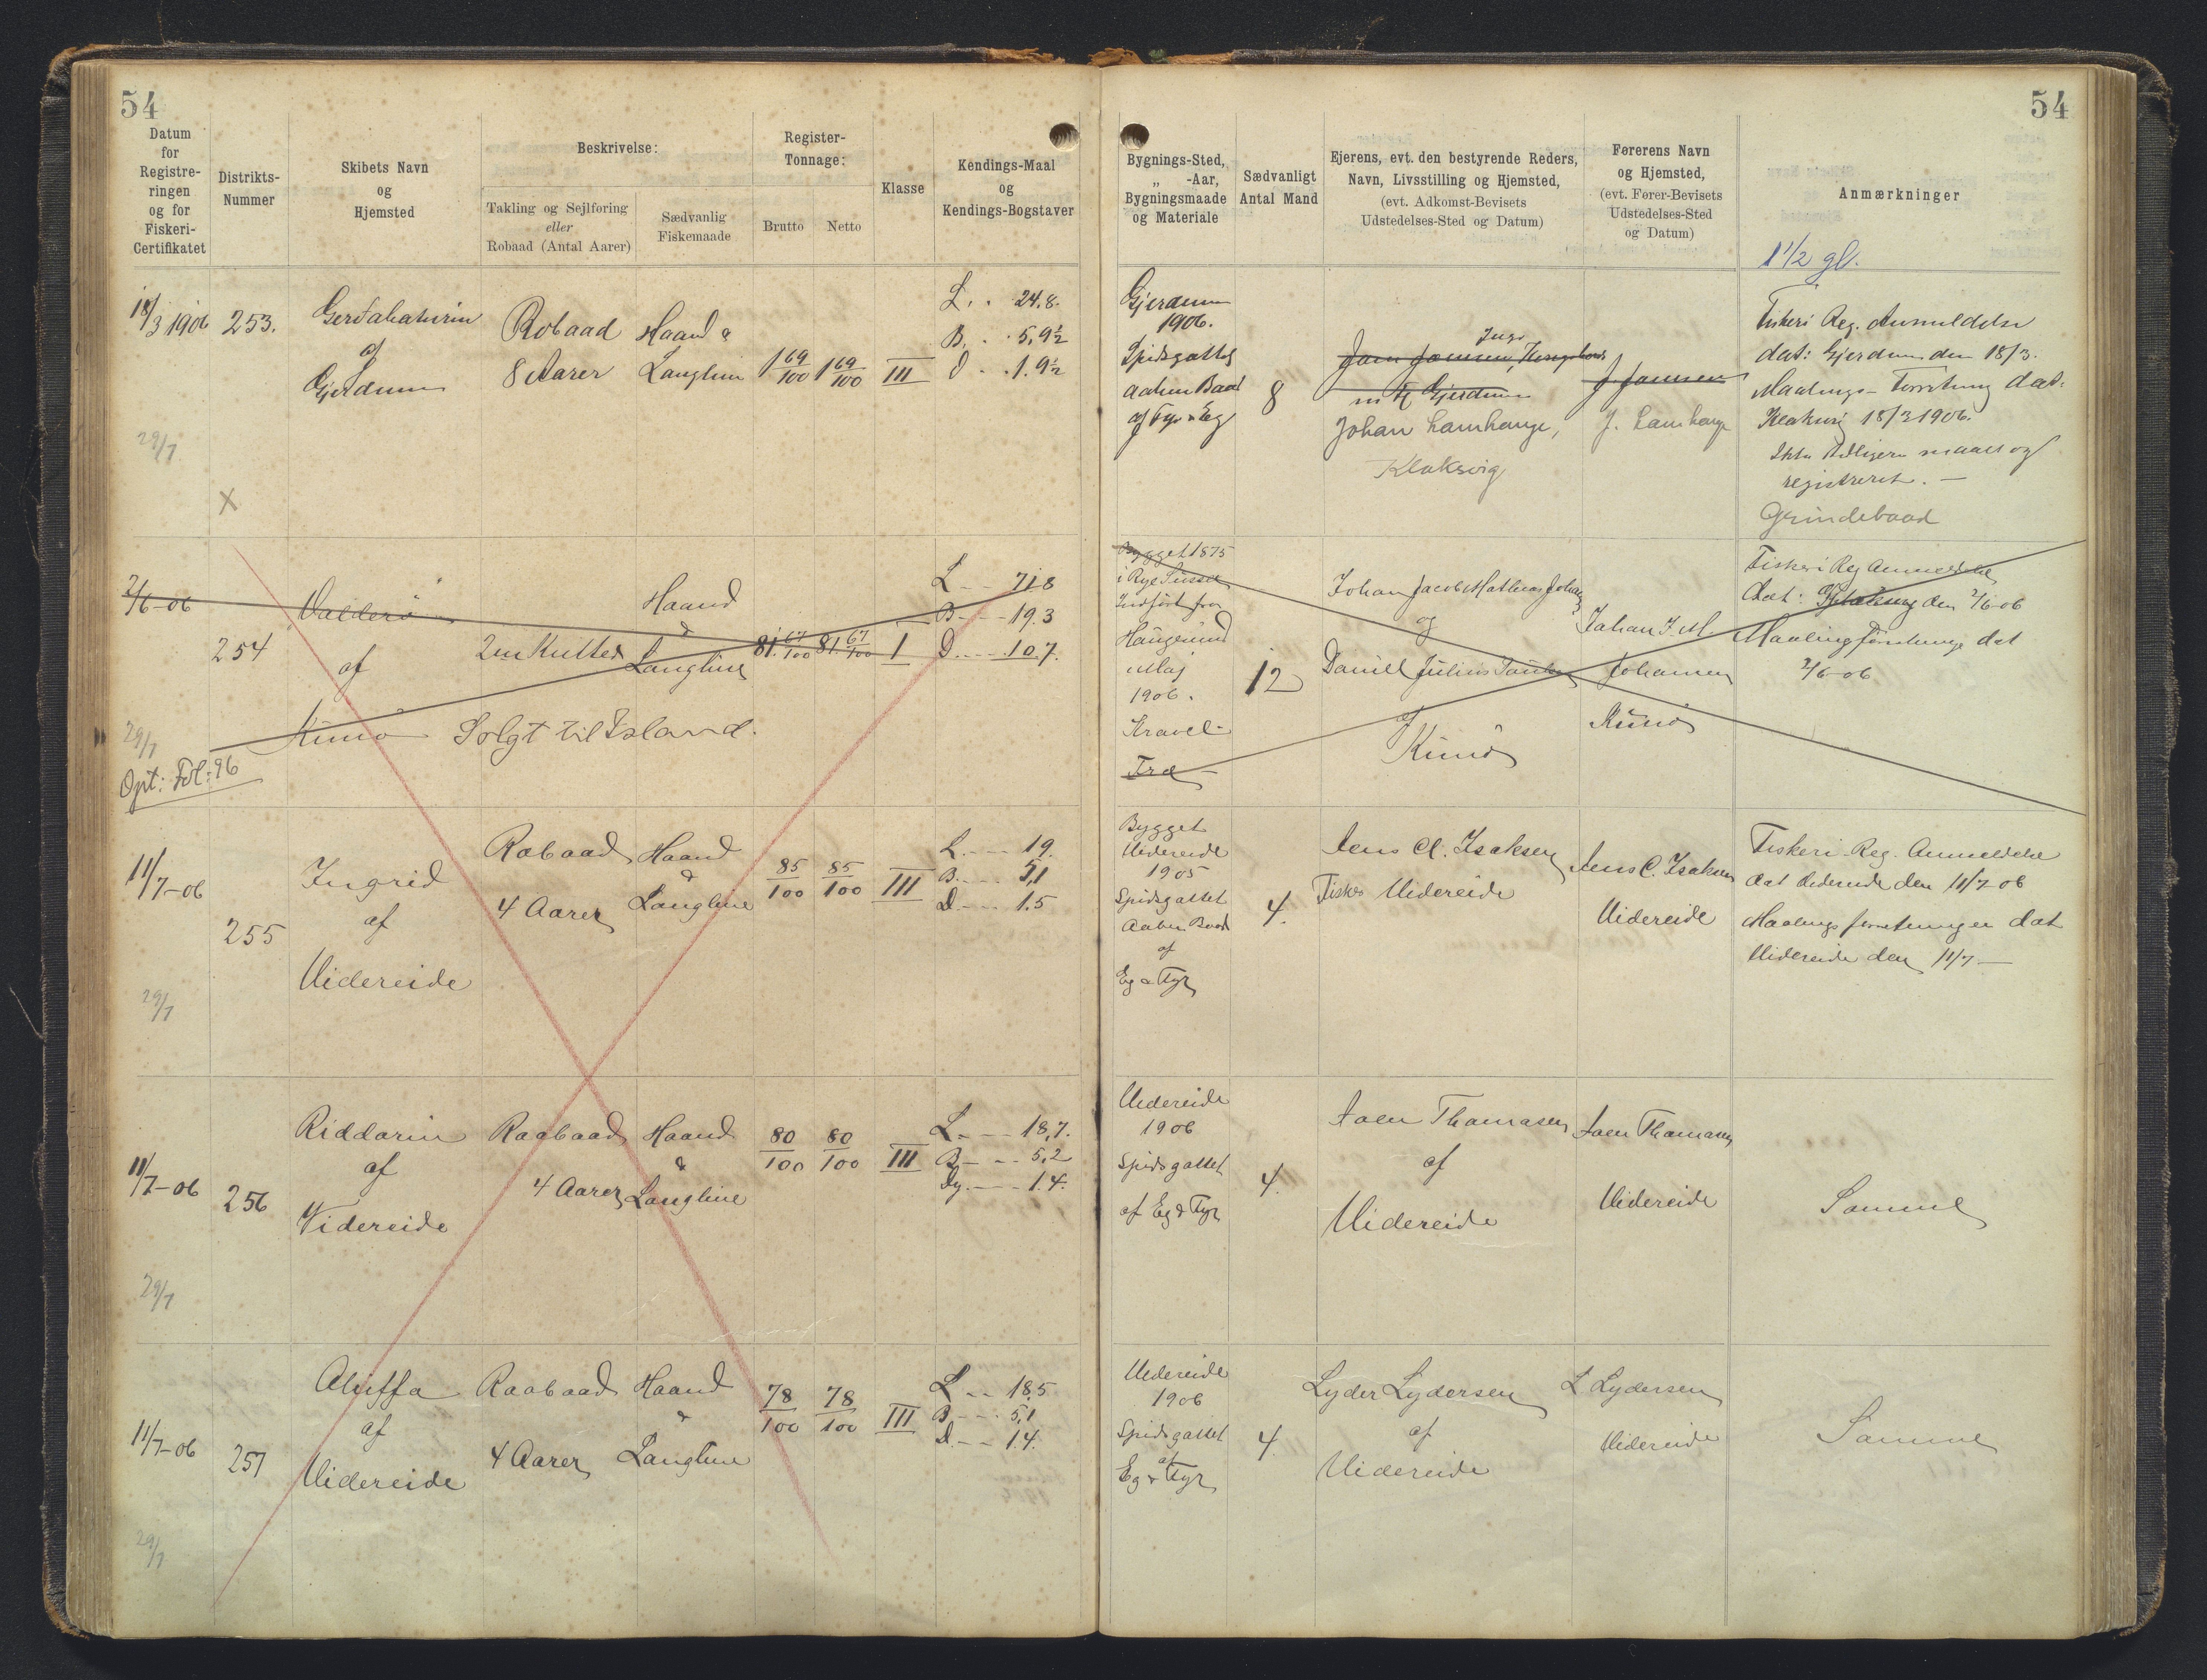 54
54
Datum
for
Registre-
ringen
og for
Fiskeri-
Certifikatet
Distrikts-
Nummer
Skibets Navn
og
Hjemsted
Beskrivelse:
Takling og Sejlføring
eller
Robaad (Antal Aarer)
Sædvanlig
Fiskemaade
Register-
Tonnage:
Brutto
Netto
Klasse
Kendings-Maal
og
Kendings-Bogstaver
Bygnings-Sted,
„ -Aar,
Bygningsmaade
og Materiale
Sædvanligt
Antal Mand
Ejerens, evt. den bestyrende Reders,
Navn, Livsstilling og Hjemsted,
(evt. Adkomst-Bevisets
Udstedelses-Sted og Datum)
Førerens Navn
og Hjemsted,
(evt. Fører-Bevisets
Udstedelses-Sted
og Datum)
Anmærkninger
1 1/2 gl.
18/3 1906
253.
af
Gjerdum
Robaad
8 Aarer
Haand &
Langline
1 69/100
1 69/100
III
L. . 24.8.
B. . . 5,9½
D . . 1.9½
Gjerdum
1906.
Spidsgattet
aaben Baad
af Fyr & Eg
8
Johan Lamhauge,
Klaksvig
J. Lamhauge
Fiskeri Reg. Anmeldelse
dat: Gjerdum den 18/3.
Maalings-Forretning dat:
Klaksvig 18/3 1906.
Ikke tidligere maalt og
registreret. —
Grindebaad
29/7
X
2/6-06
254
Valderö
af
Kunø
2m Kutter
Haand
&
Langline
81 67/100
81 67/100
I
L - - 71.8
B - - 19.3
D - - 10.7.
Solgt til Island.
Bygget 1875
i Rye Sussex
Indført fra
Haugesund
Maj
1906.
Kravel
Træ
12
Johan Jacob Mathias Johans
og
Daniel Julius
af
Kunø
Johan J. M
Johansen
Kunø
Fiskeri Reg Anmeldelse
Dat: den 2/6-06
Maalingsforretninge dat
2/6-06
29/7
Opt: Fol: 96
11/7-06
255
Ingrid
af
Videreide
Robaad
4 Aarer
Haand
&
Langline
85/100
85/100
III
L. - - 19.
B. - - 5,1
D - - 1.5
Bygget
Videreide
1905
Spidsgattet
Aaben Baad
af
Eg & Fyr
4.
Jens Cl. Isaksen
Fisker Videreide
Jens C. Isaksen
Videreide
Fiskeri-Reg. Anmeldelse
dat Videreide den 11/7-06
Maalingsforretningen dat
Videreide den 11/7 —
29/7
11/7-06
256
Riddarin
af
Videreide
Raabaad
4 Aarer
Haand
&
Langline
80/100
80/100
III
L. - - 18,7.
B - - 5,2
Dy. - - 1.4.
Videreide
1906
Spidsgattet
af Eg & Fyr
4.
Joen Thomasen
af
Videreide
Joen Thomasen
Videreide
Samme
29/7
11/7-06
257
af
Videreide
Raabaad
4 Aarer
Haand
&
Langline
78/100
78/100
III
L - - 18.5
B - - 5,1
D - - 1.4.
Videreide
1906
Spidsgattet
af
Eg & Fyr
4.
Lyder Lydersen
af
Videreide
L Lydersen
Videreide
Samme
29/7